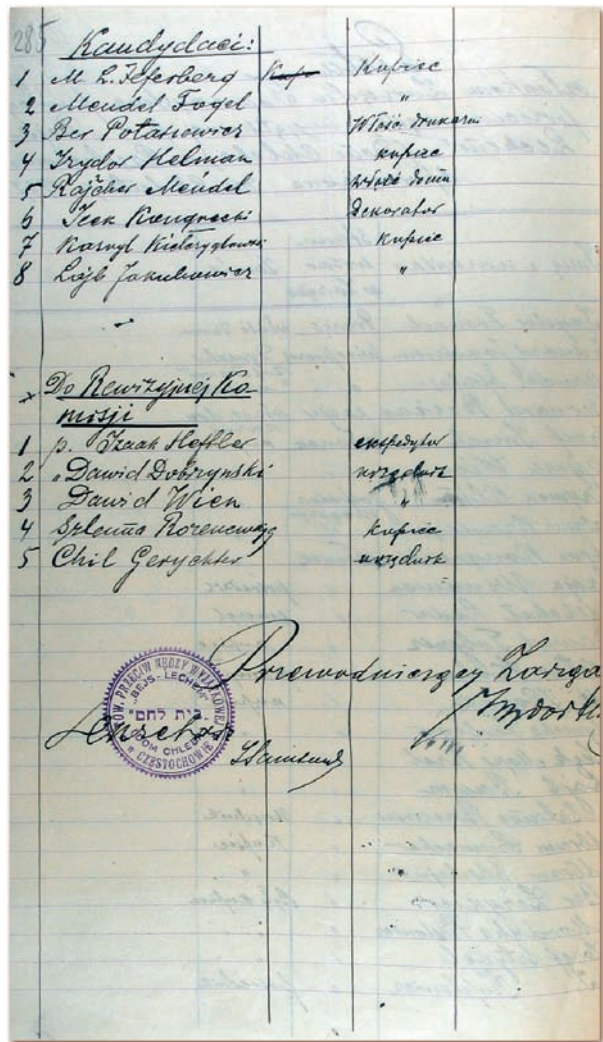 285
Kandydaci:
1 M. L. Jeferberg Kupiec
2 Mendel Fogel "
3 Ber Potasiewicz Właść. drukarni
4 Izydor Helman kupiec
5 Rajcher Mendel Właść domu
6 Icek Kongrecki Dekorator
7 Kasryl kupiec
8 Lajb Jakubowicz "
Do Rewizyjnej Ko
misji
1 p. Izaak Heftler ekspedytor
2 " Dawid Dobrzynski urzędnik
3 Dawid Wien "
4 Szlama Rozencwajg kupiec
5 Chil Gerychter urzędnik
Przewodniczący
TOW. PRZECIW NĘDZY WYJĄTKOWEJ
"BEJS-LECHEM"
"בית לחם"
DOM CHLEBA
w CZĘSTOCHOWIE